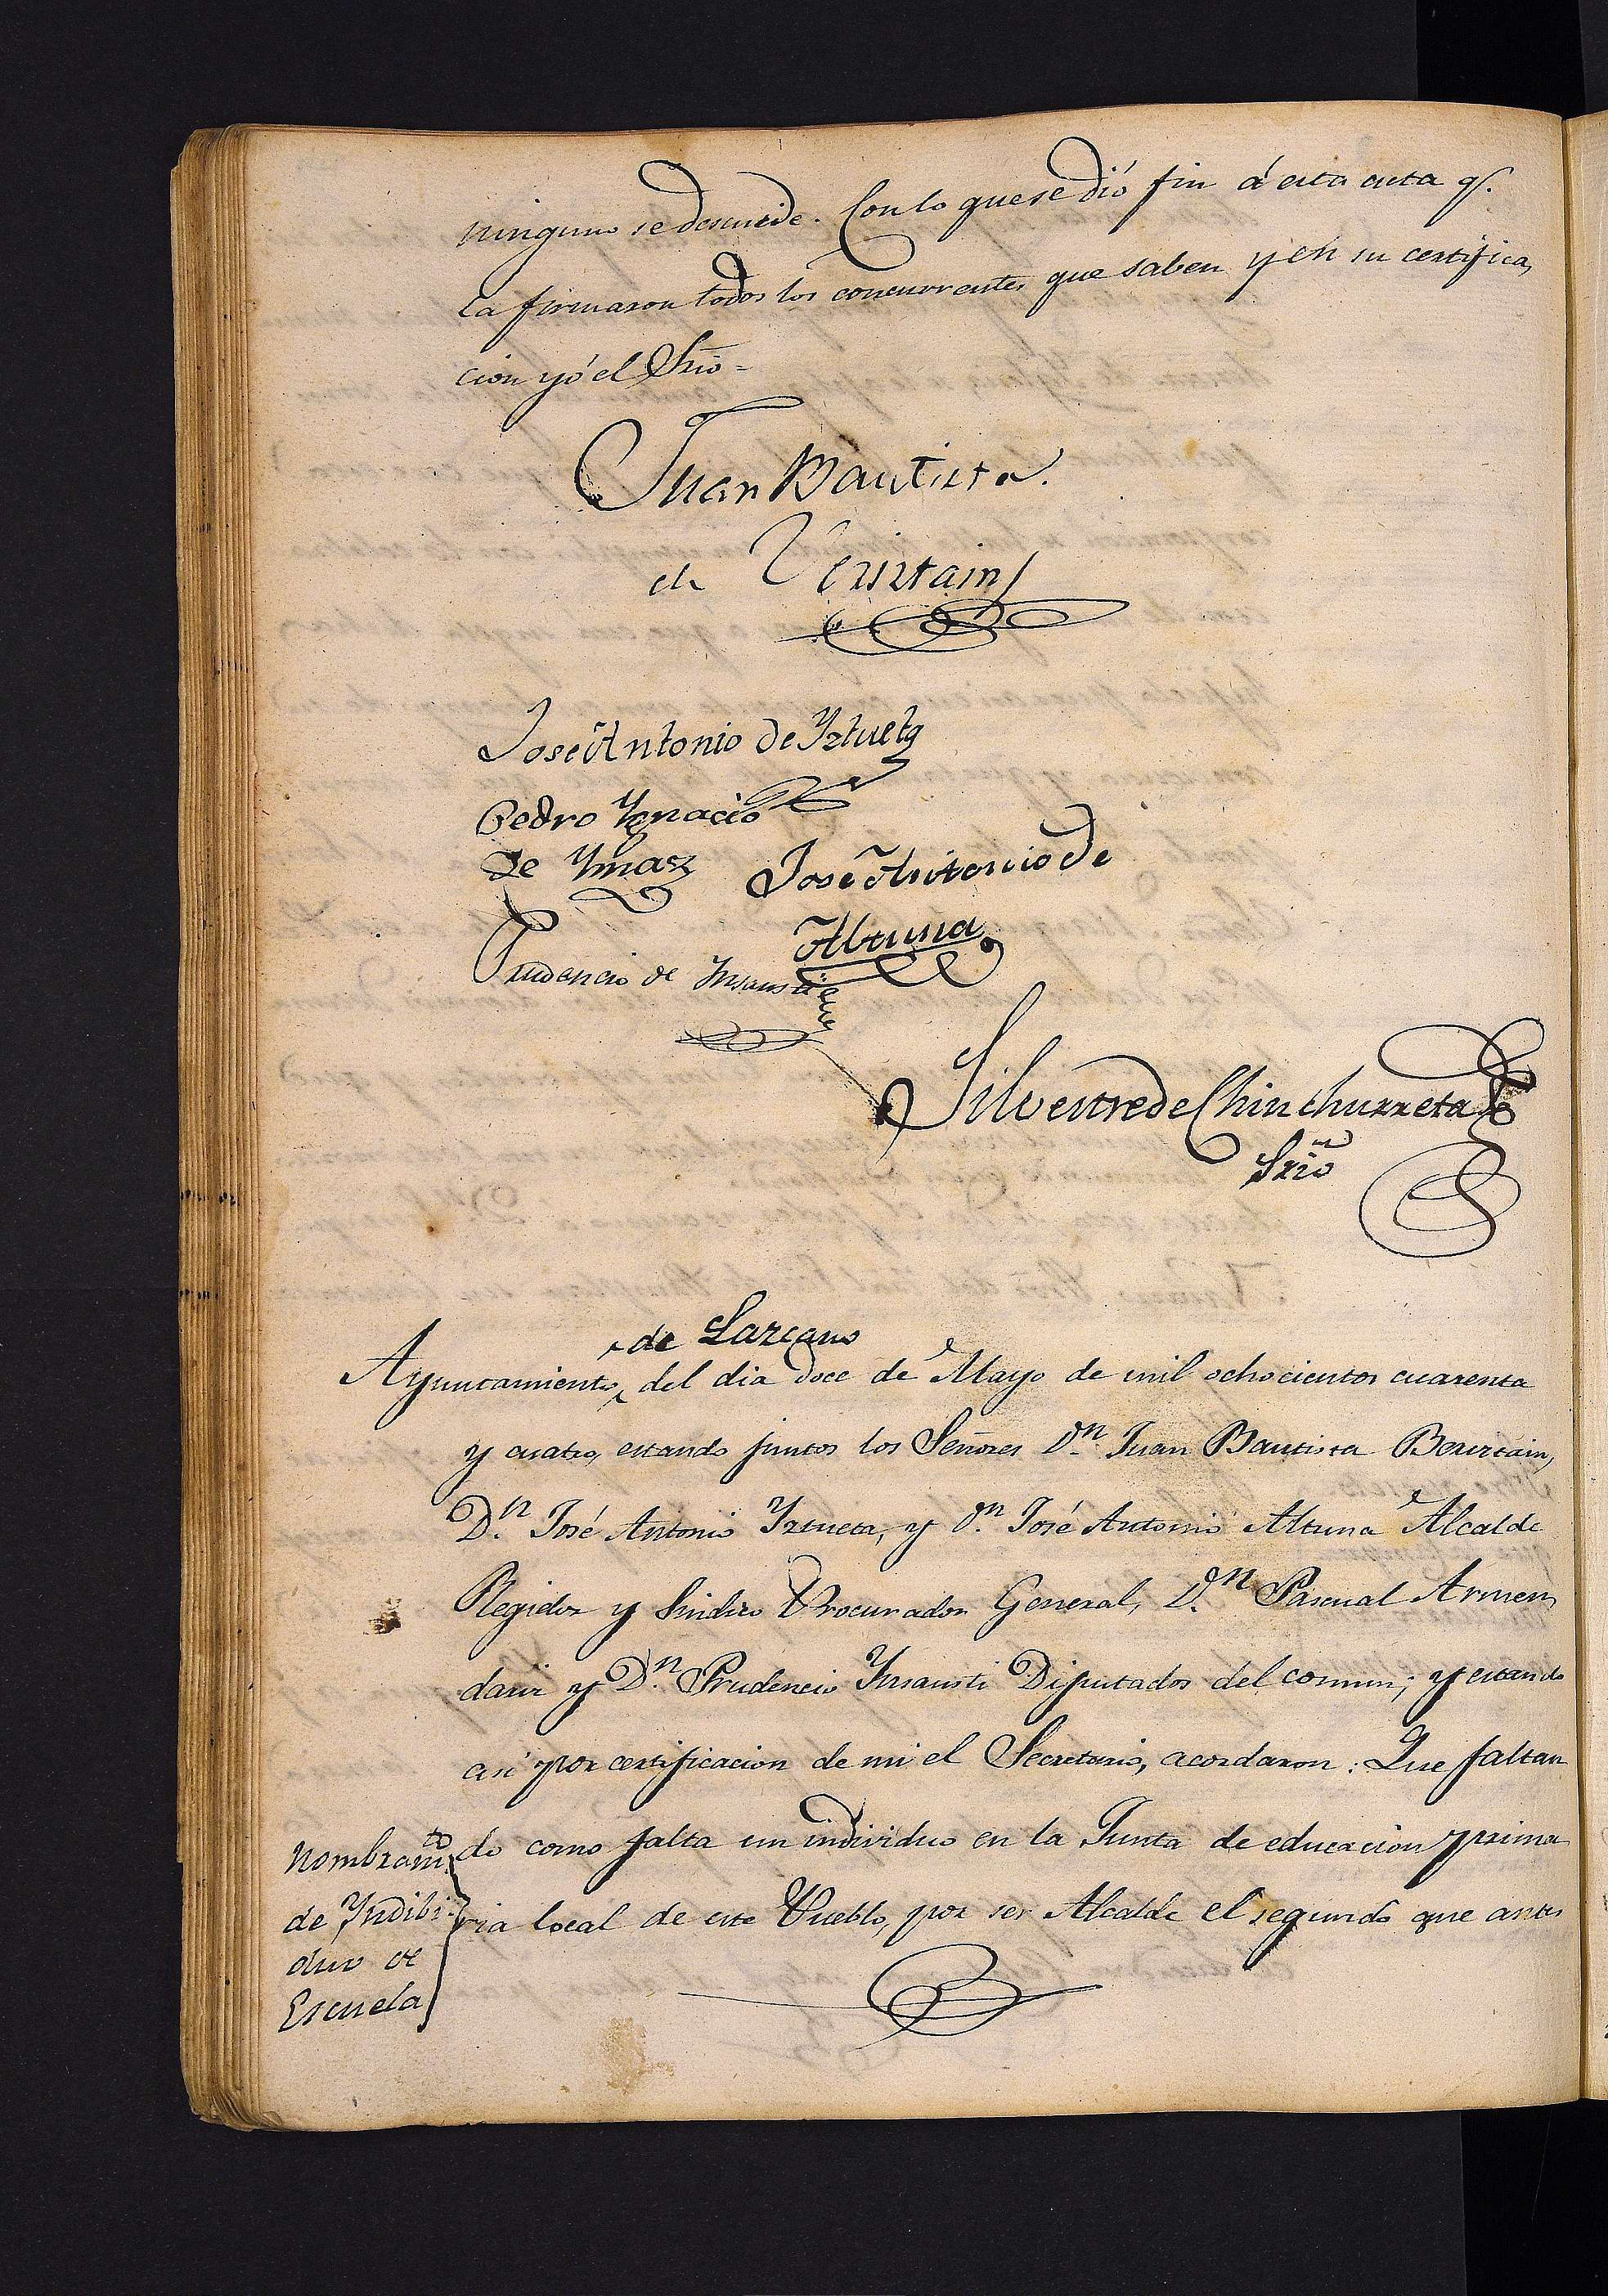 ninguno se descuide. Con lo que se dió fin á esta acta q.e
la firmaron todos los concurrentes que saben y en su certifica,
cion yó el Srio=
Juan Bautista
de Verirtain
José Antonio de Yztueta
Pedro Ygnacio
de Ymaz
José Antonio de
Altuna
Prudencio de Ynsausti
Silvestre de Chinchurreta
Srio
de Lazcano
Ayuntamiento del dia doce de Mayo de mil ochocientos cuarenta
y cuatro, estando juntos los Señores D.n Juan Bautista Berirtain,
D.n José Antonio Yztueta, y D.n José Antonio Altuna Alcalde
Regidor y Sindico Procurador General, D.n Pascual Armen,
dariz y D.n Prudencio Ynsausti Diputados del comun; y estando
asi por certificacion de mi el Secretario, acordaron: Que faltan
do como falta un individuo en la Junta de educacion prima
ria local de este Pueblo, por ser Alcalde el segundo que antes
Nombram.to
de Yndibi
duo de
Escuela